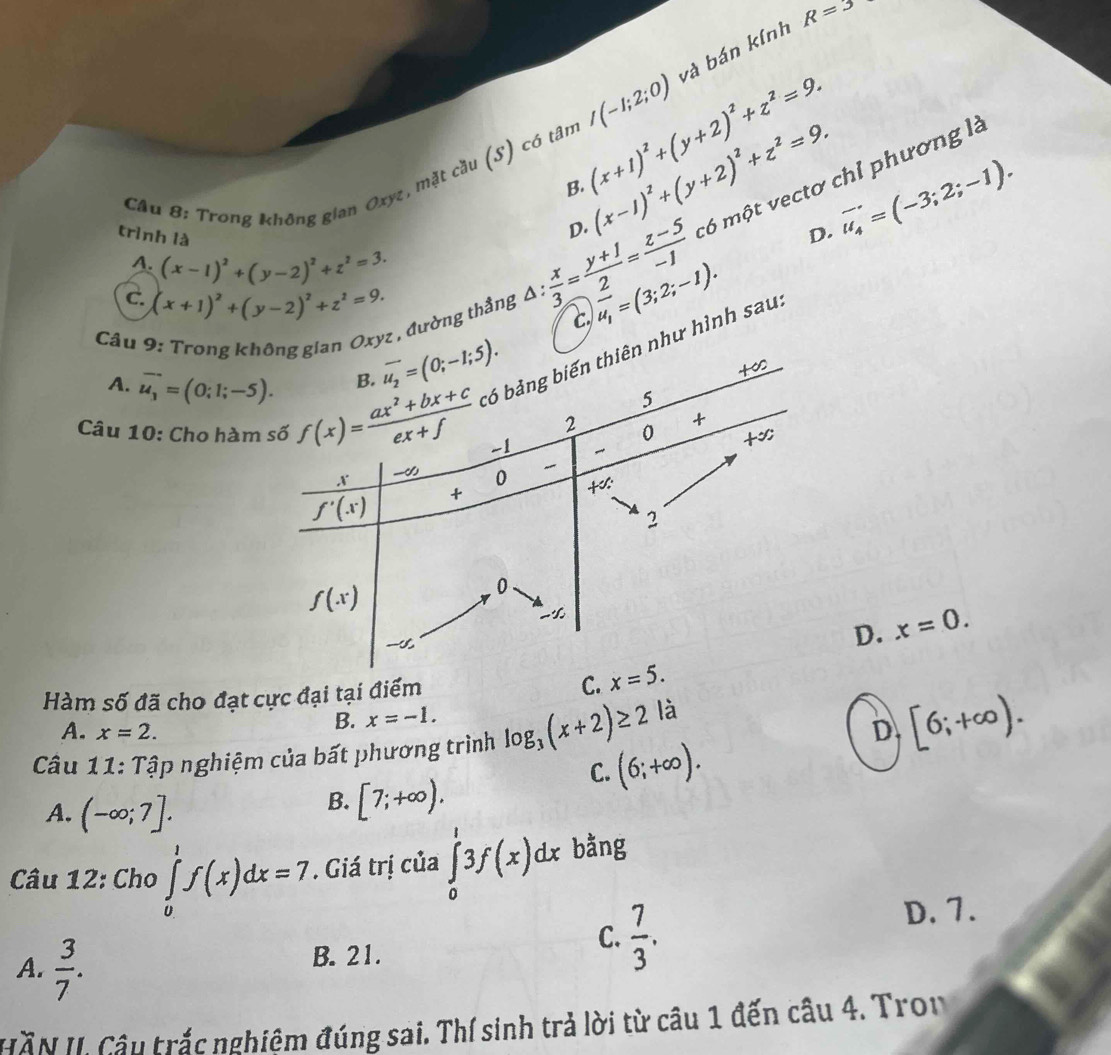 Câu 8: Trong không gian Oxyz, mặt cầu (S) có tâm I(-1;2;0) và bán kính R=3
trình là
A. (x-1)²+(y-2)²+z²=3.
B. (x+1)²+(y+2)²+z²=9.
C. (x+1)²+(y-2)²+z²=9.
D. (x-1)²+(y+2)²+z²=9.
Câu 9: Trong không gian Oxyz, đường thẳng Δ: x/3 = (y+1)/2 = (z-5)/-1 có một vectơ chỉ phương là
A. u₃=(0;1;-5). B. u₂=(0;-1;5). C. u₁=(3;2;-1). D. u₄=(-3;2;-1).
Câu 10: Cho hàm số f(x)=(ax²+bx+c)/(ex+f) có bảng biến thiên như hình sau:
x -∞ -1 2 5 +∞
f'(x) + 0 - - 0 +
f(x) -∞ 0 -∞ +∞ 2 +∞
Hàm số đã cho đạt cực đại tại điểm
A. x=2. B. x=-1. C. x=5. D. x=0.
Câu 11: Tập nghiệm của bất phương trình log₃(x+2)≥2 là
A. (-∞;7]. B. [7;+∞). C. (6;+∞). D. [6;+∞).
Câu 12: Cho ∫₀¹ f(x)dx=7. Giá trị của ∫₀¹ 3f(x)dx bằng
A. 3/7. B. 21. C. 7/3. D. 7.
PHẦN II. Câu trắc nghiệm đúng sai. Thí sinh trả lời từ câu 1 đến câu 4. Tron